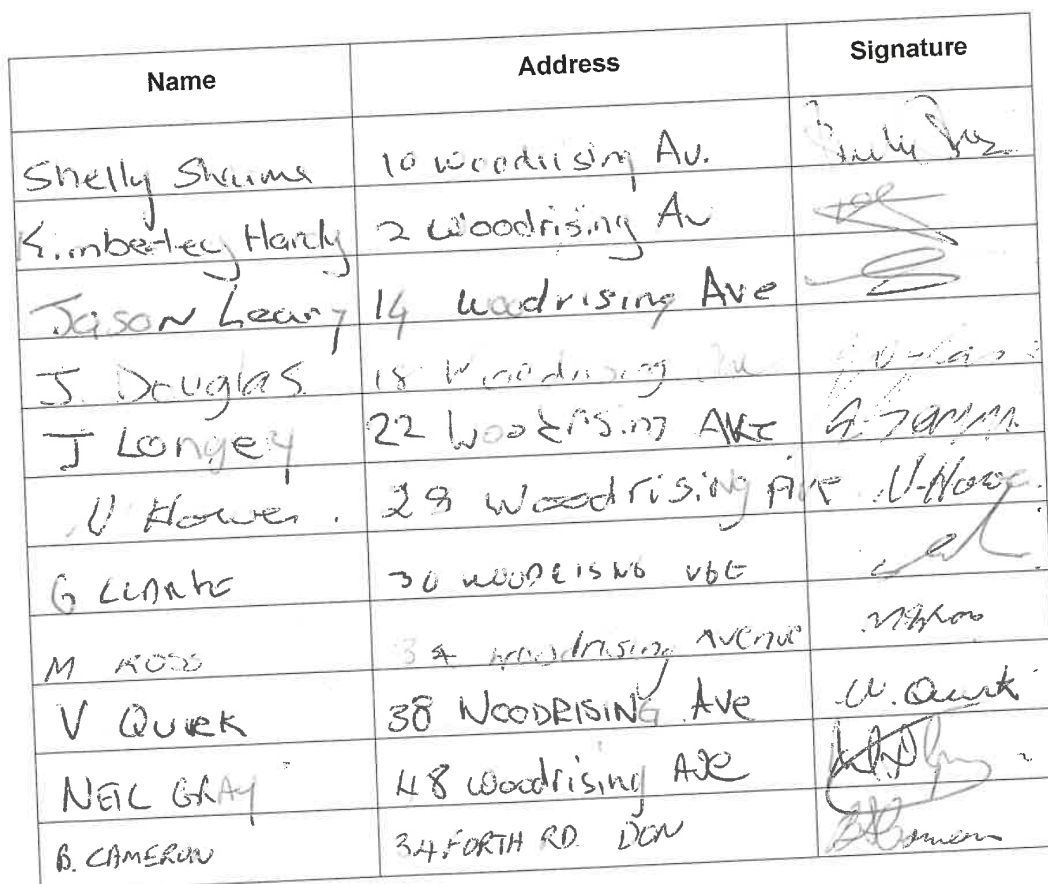 Name Address Signature
Shelly Sharma 10 Woodrising Av.
Kimberley Hardy 2 Woodrising Av
Jason Leary 14 Woodrising Ave
J. Douglas 18 Woodrising
J Longey 22 Woodrising Ave
V Howe 28 Woodrising Ave V. Howe
G CLARKE 30 WOODRISING
M ROSS 34 Woodrising Avenue
V QUIRK 38 WOODRISING Ave V. Quirk
NEIL GRAY 48 Woodrising Ave
B. CAMERON 34 FORTH RD. DON